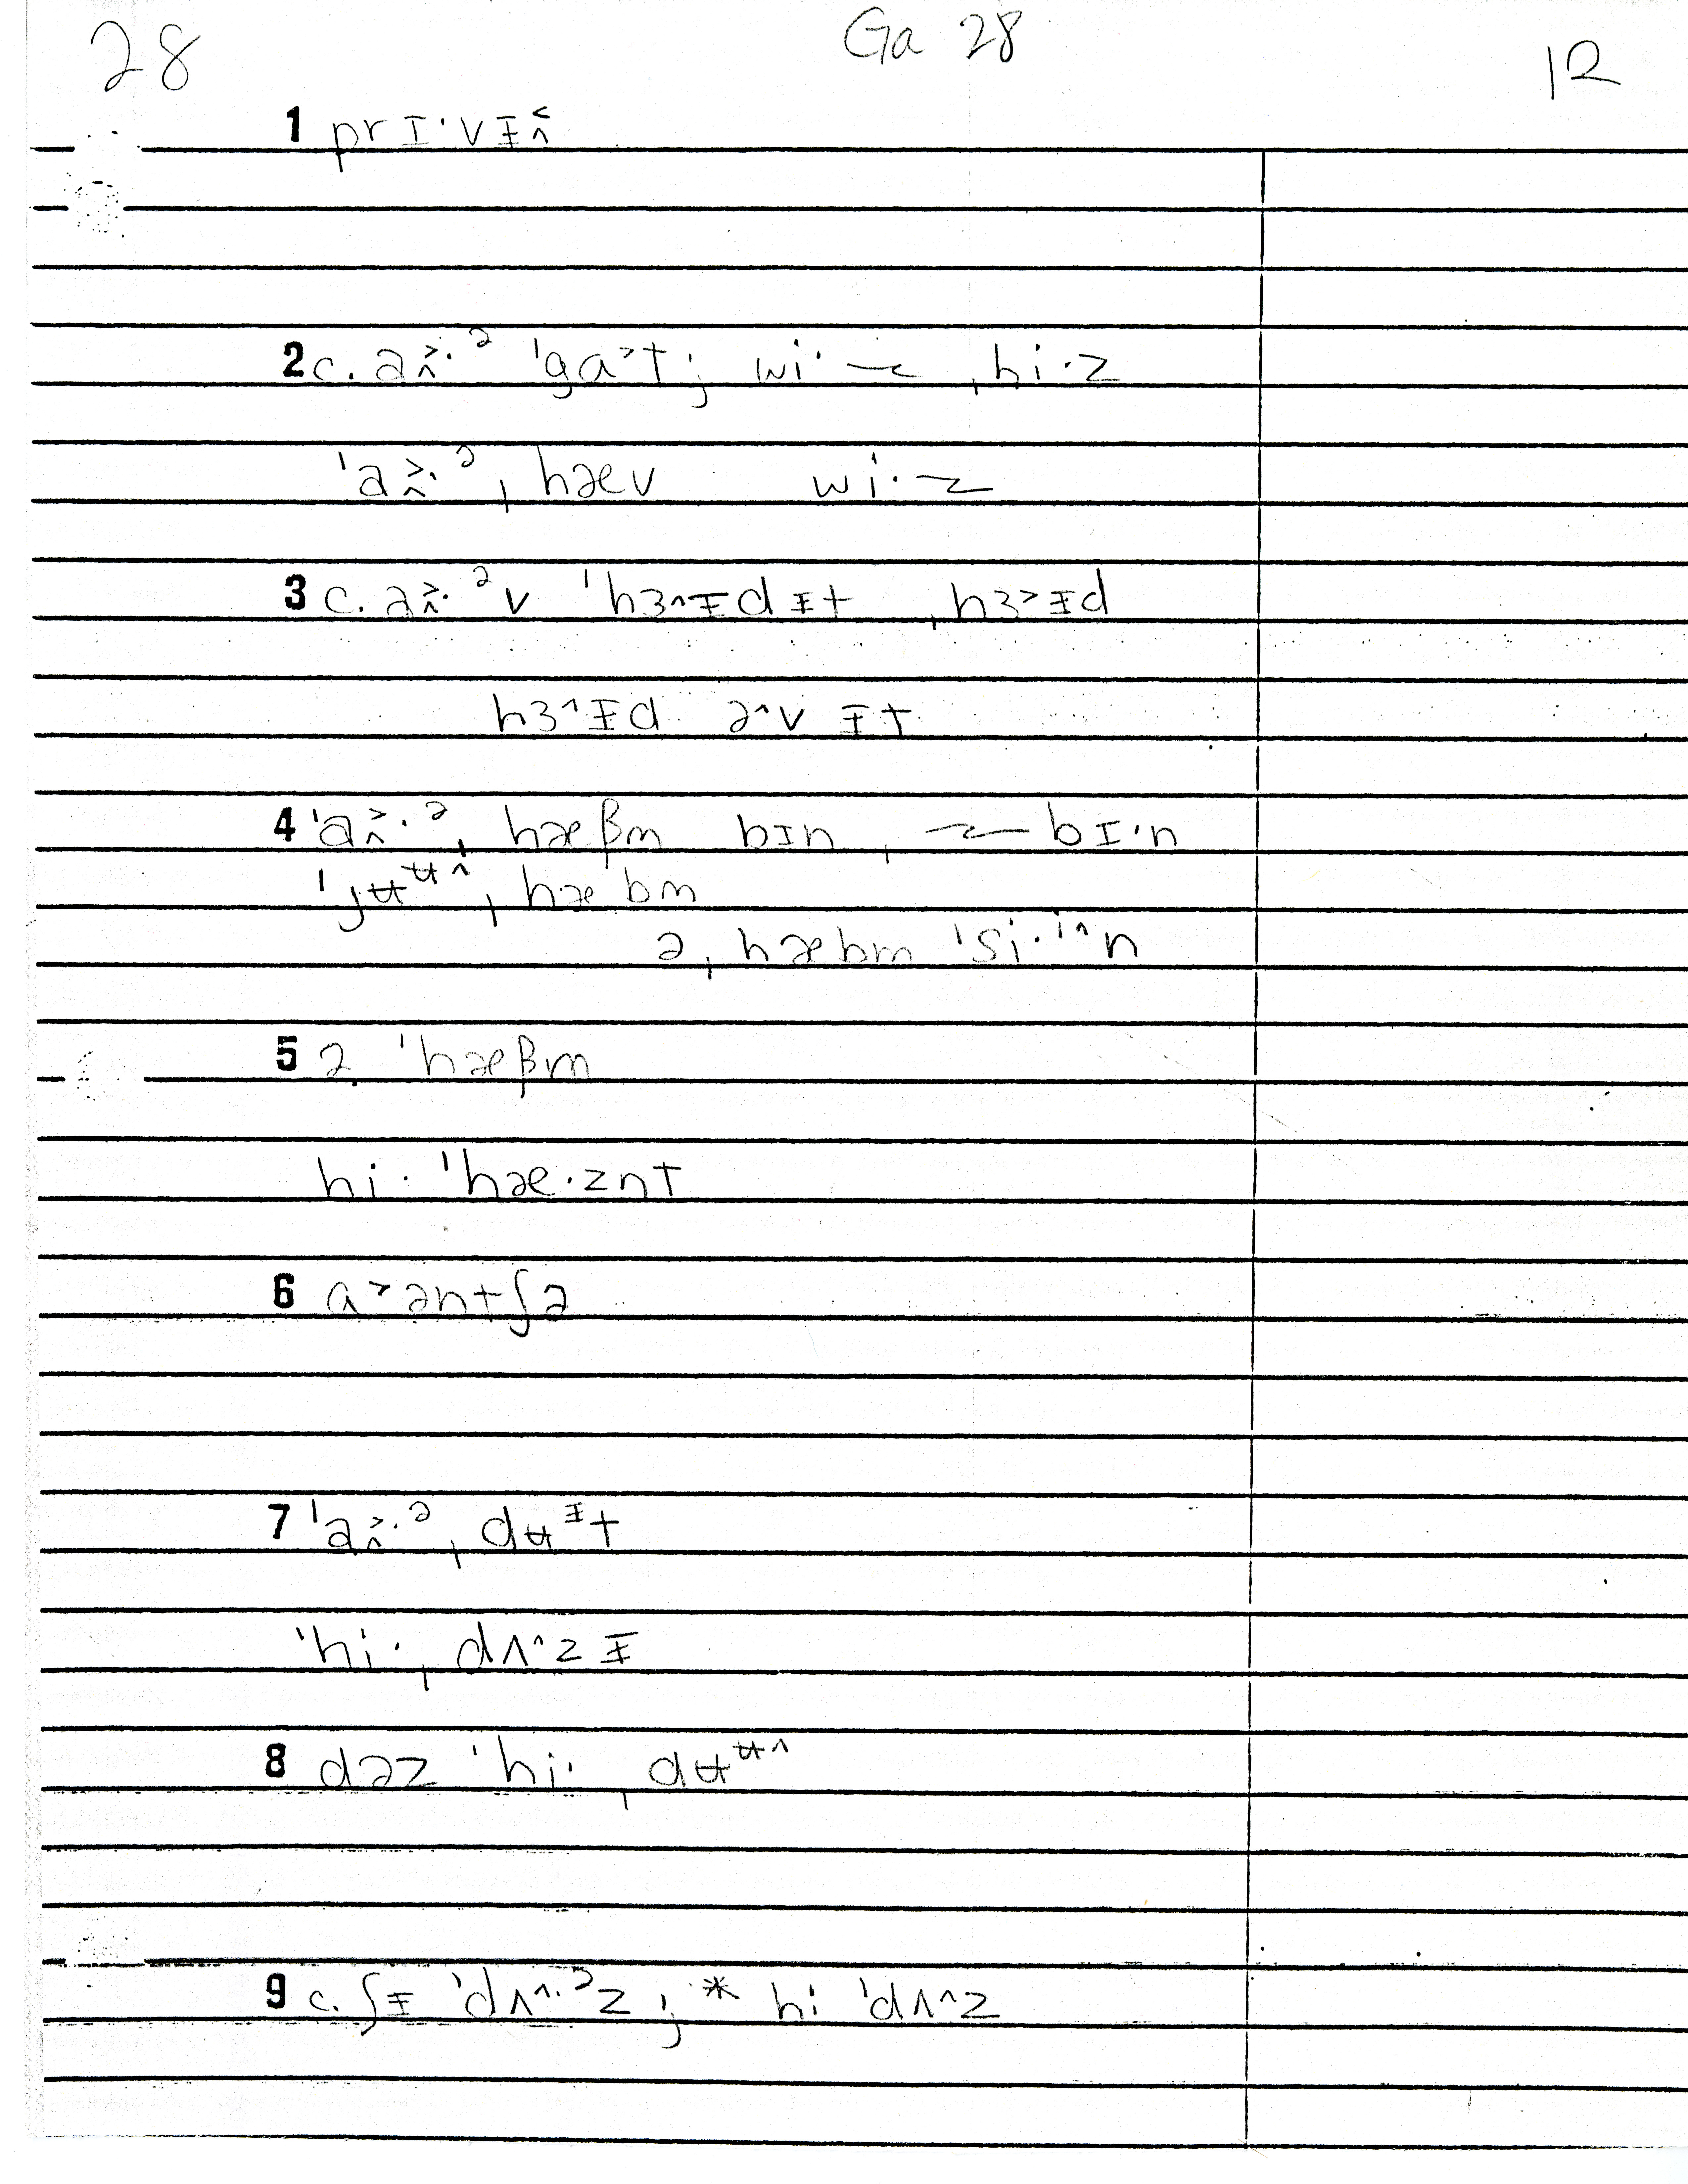 28 Ga 28 12
1 prɪ·vᵻ‸˂
2 c. a‸˃·ᵊ ˈgɑ˃t ; wi· ~ ˌhi·z
ˈa‸˃·ᵊ ˌhæv wi· ~
3 c. a‸˃·ᵊv ˈhɜ^ᵻdᵻt ˌhɜ˃ᵻd
hɜ^ᵻd ə^v ᵻt
4 ˈa‸˃·ᵊ ˌhæβm bɪn ˌ~ bɪ·n
ˈjʉᶶ^ ˌhæbm
ə ˌhæbm ˈsi·ⁱ^n
5 ə ˈhæβm
hi· ˈhæ·znt
6 ɑ˃əntʃə
7 ˈa‸˃·ᵊ ˌdʉᵻt
ˈhi· ˌdʌ^zᵻ
8 dəz ˈhi· ˌdʉᶶ^
9 c. ʃᵻ ˈdʌ^·ᵊz ; * hi ˈdʌ^z